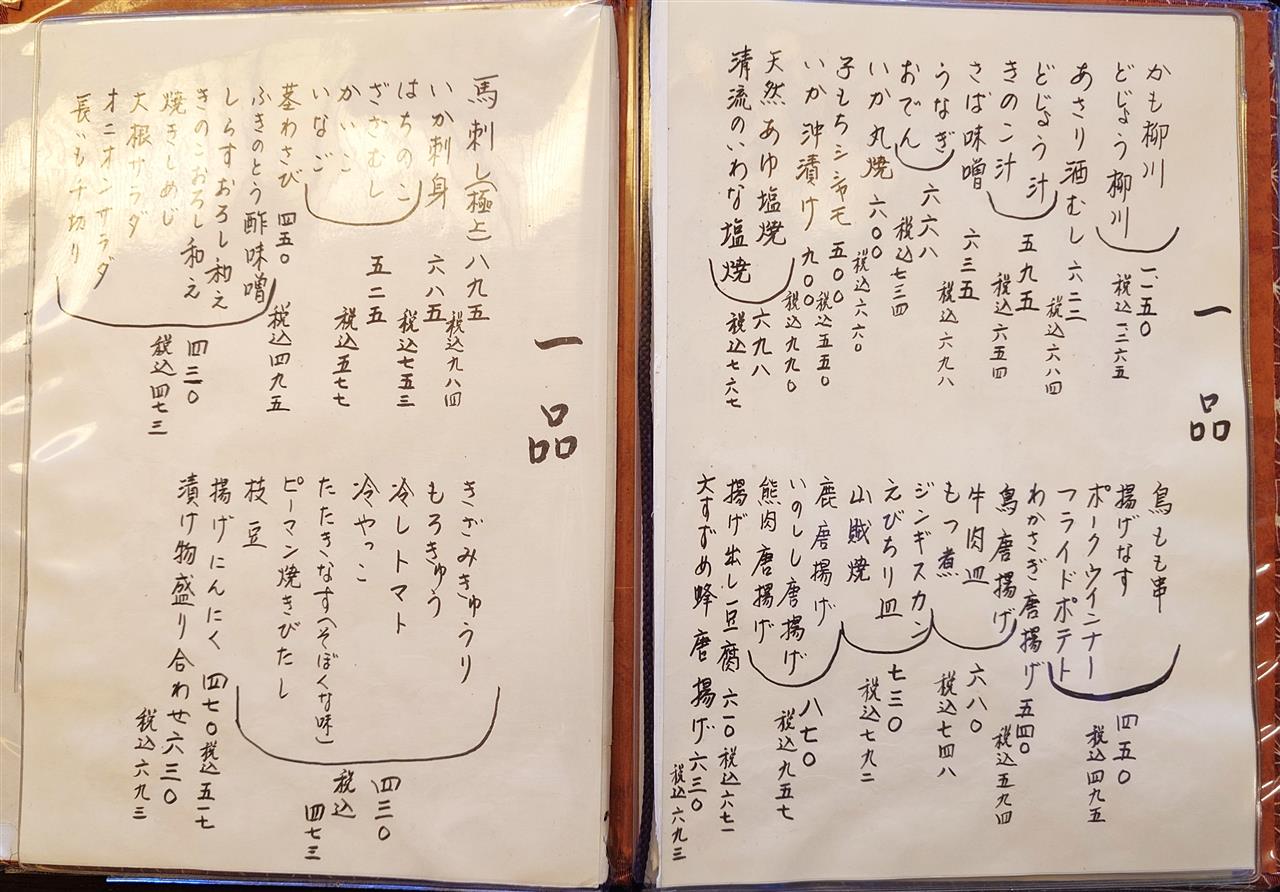 一品
かも柳川
どじょう柳川
一、一五〇
税込一二六五
あさり酒むし 六二二
税込六八四
どじょう汁
きのこ汁
五九五
税込六五四
さば味噌 六三五
税込六九八
うなぎ
おでん
六六八
税込七三四
いか丸焼 六〇〇
税込六六〇
子もちシシャモ 五〇〇
税込五五〇
いか沖漬け 九〇〇
税込九九〇
天然あゆ塩焼
清流のいわな塩焼
六九八
税込七六七
鳥もも串
揚げなす
ポークウインナー
フライドポテト
四五〇
税込四九五
わかさぎ唐揚げ 五四〇
税込五九四
鳥唐揚げ
牛肉皿
もつ煮
六八〇
税込七四八
ジンギスカン
えびちり皿
山賊焼
七三〇
税込七九二
鹿唐揚げ
いのしし唐揚げ
熊肉唐揚げ
八七〇
税込九五七
揚げ出し豆腐 六一〇 税込六七一
大すずめ蜂唐揚げ 六三〇
税込六九三
一品
馬刺し(極上) 八九五
税込九八四
いか刺身 六八五
税込七五三
はちのこ
ざざむし
かいこ
いなご
五二五
税込五七七
茎わさび 四五〇
税込四九五
ふきのとう酢味噌
しらすおろし和え
きのこおろし和え
焼きしめじ
大根サラダ
オニオンサラダ
長いも千切り
四三〇
税込四七三
きざみきゅうり
もろきゅう
冷しトマト
冷やっこ
たたきなす(そぼくな味)
ピーマン焼きびたし
枝豆
四三〇
税込
四七三
揚げにんにく 四七〇 税込五一七
漬け物盛り合わせ 六三〇
税込六九三